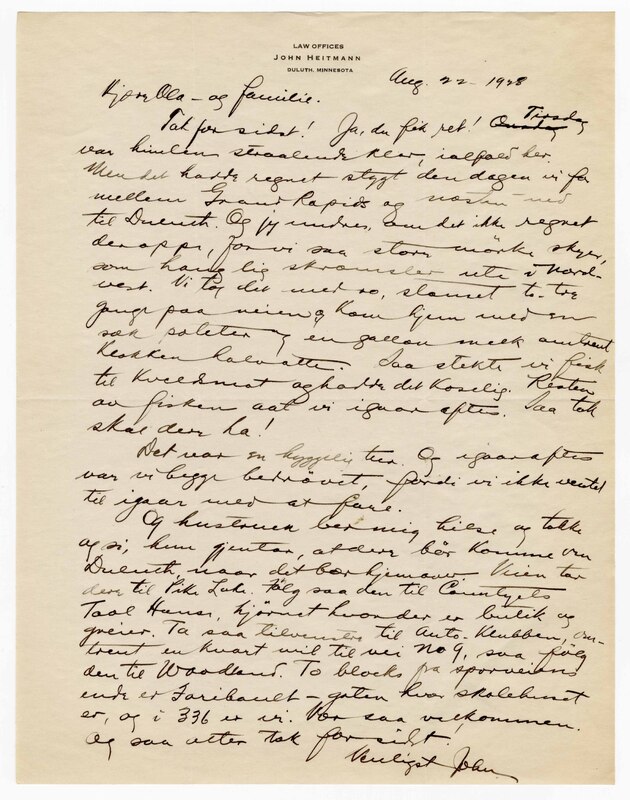 LAW OFFICES
JOHN HEITMANN
DULUTH, MINNESOTA
Aug. 22 - 1928
Kjære Ola - og familie.
Tak for sidst! Ja, du fik ret! Onsdag Tirsdag
var himlen straalende klar, ialfald her.
Men det hadde regnet stygt den dagen vi for
mellem Grand Rapids og næsten ned
til Duluth. Og jeg undres, om det ikke regnet
deroppe, for vi saa store mörke skyer,
som hang lig skræmsler ute i Nord-
vest. Vi tog det med ro, stanset to-tre
gange paa veien og kom hjem med en
sæk poteter og en gallon melk omtrent
klokken halvotte. Saa stekte vi fisk
til Kveldsmat og hadde det koselig. Resten
av fisken aat vi igaar aftes. Saa tak
skal dere ha!
Det var en hyggelig tur. Og igaar aftes
var vi begge bedrövet, fordi vi ikke ventet
til igaar med at fare.
Og hustruen ber mig hilse og takke
og si, hun gjentar, at dere bör komme om
Duluth, naar det bær hjemover. Veien tar
dere til Pike Lake. Fölg saa den til Countyets
hjörnet hvor der er butik og
greier. Ta saa tilvenstre til Auto-Klubben, om-
trent en kvart mil til vei No 9, saa fölg
den til Woodland. To blocks fra sporveiens
ende er Faribault - gaten hvor skolehuset
er, og i 336 er vi. Vær saa velkommen.
Og saa atter tak for sidst.
Venligst John